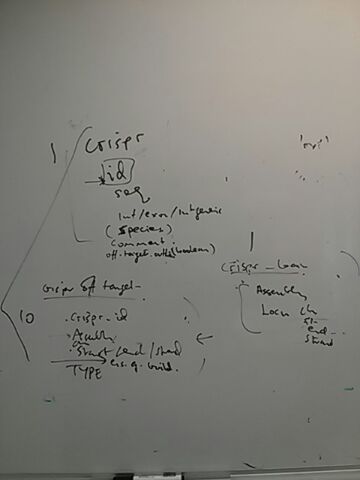 1 crispr
id
seq
Int/exon/Intergenic
(Species)
comment
off-target.outlier(boolean)
'ori'
1
crispr_locn
Assembly
Locn ch
st
end
strand
crispr off target
10
.crispr_id
.Assembly
.Start/end/strand
TYPE e.g. build